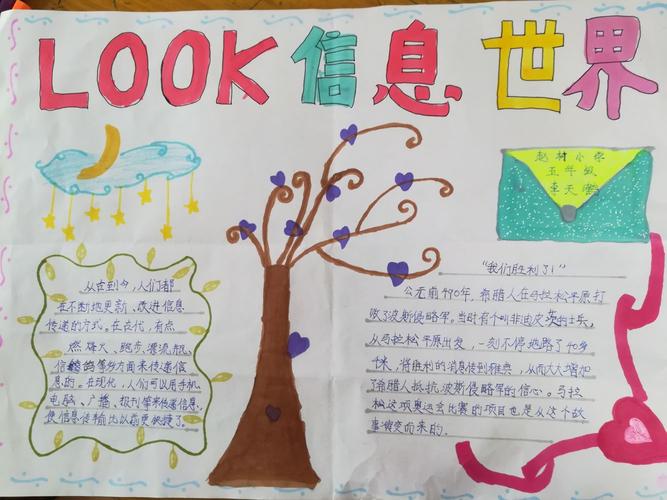 LOOK信息世界
赵村小学
五年级
李天
从古到今，人们都
在不断地更新、改进信息
传递的方式。在古代，有点
燃烽火、跑步、漂流瓶、
信鸽等多方面来传递信
息的。在现代，人们可以用手机、
电脑、广播、报刊等来传递信息，
使信息传输比以前更快捷了。
"我们胜利了！"
公元前490年，希腊人在马拉松平原打
败了波斯侵略军。当时有个叫菲迪皮茨的士兵，
从马拉松平原出发，一刻不停地跑了40多
千米，将胜利的消息传到雅典，从而大大增加
了希腊人抵抗波斯侵略军的信心。马拉
松这项奥运会比赛的项目也是从这个故
事演变而来的。